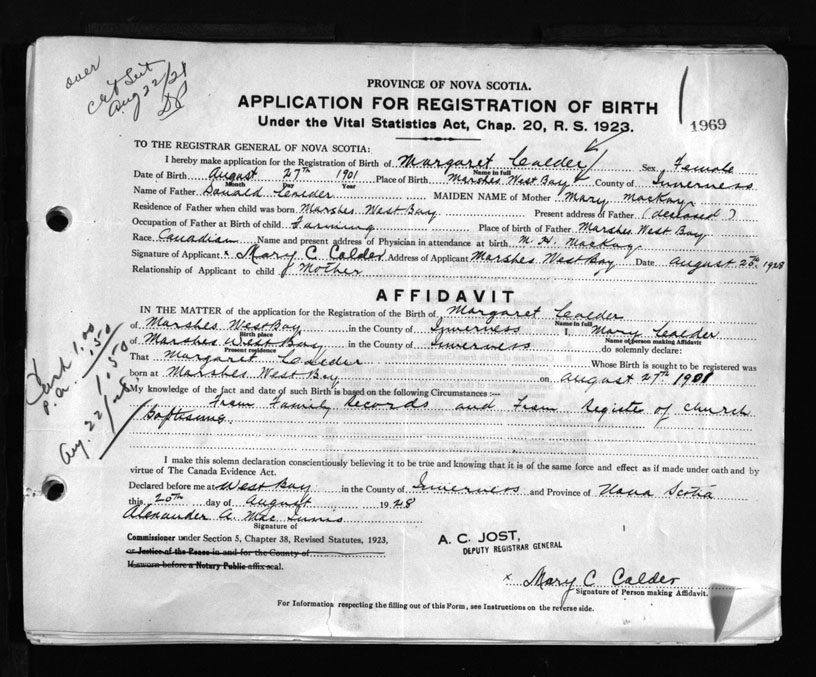 over
Aug 22/28
PROVINCE OF NOVA SCOTIA.
APPLICATION FOR REGISTRATION OF BIRTH
Under the Vital Statistics Act, Chap. 20, R. S. 1923.
1969
TO THE REGISTRAR GENERAL OF NOVA SCOTIA:
I hereby make application for the Registration of Birth of Margaret Calder Sex Female
Name in full
Date of Birth August 27th 1901 Place of Birth Marshes West Bay County of Inverness
Month Day Year
Name of Father Donald Calder MAIDEN NAME of Mother Mary MacKay
Residence of Father when child was born Marshes West Bay Present address of Father (deceased)
Occupation of Father at Birth of child Farming Place of birth of Father Marshes West Bay
Race Canadian Name and present address of Physician in attendance at birth M. H. MacKay
Signature of Applicant x Mary C. Calder Address of Applicant Marshes West Bay Date August 20th 1928
Relationship of Applicant to child Mother
AFFIDAVIT
IN THE MATTER of the application for the Registration of the Birth of Margaret Calder
Name in full
of Marshes West Bay in the County of Inverness I, Mary Calder
Birth place Name of person making Affidavit
of Marshes West Bay in the County of Inverness do solemnly declare:
Present residence
That Margaret Calder Whose Birth is sought to be registered was
born at Marshes West Bay on August 27th 1901
My knowledge of the fact and date of such Birth is based on the following Circumstances :—
From Family Records and From Register of Church
Baptisms
1.00
.50
1.50
Aug. 22/28
I make this solemn declaration conscientiously believing it to be true and knowing that it is of the same force and effect as if made under oath and by
virtue of The Canada Evidence Act.
Declared before me at West Bay in the County of Inverness and Province of Nova Scotia
this 20th day of August 1928
Alexander A. MacInnis
Signature of
Commissioner under Section 5, Chapter 38, Revised Statutes, 1923,
or Justice of the Peace in and for the County of
If sworn before a Notary Public affix seal.
A. C. JOST,
DEPUTY REGISTRAR GENERAL
x Mary C Calder
Signature of Person making Affidavit.
For Information respecting the filling out of this Form, see Instructions on the reverse side.